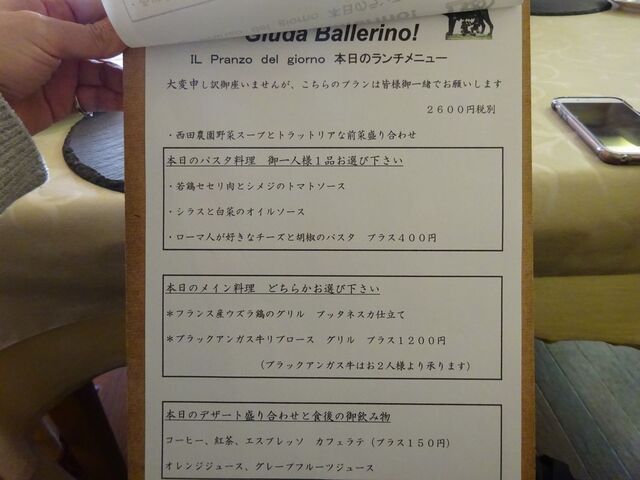 Giuda Ballerino!
IL Pranzo del giorno 本日のランチメニュー
大変申し訳御座いませんが、こちらのプランは皆様御一緒でお願いします
2600円税別
・西田農園野菜スープとトラットリアな前菜盛り合わせ
本日のパスタ料理 御一人様1品お選び下さい
・若鶏セセリ肉とシメジのトマトソース
・シラスと白菜のオイルソース
・ローマ人が好きなチーズと胡椒のパスタ プラス400円
本日のメイン料理 どちらかお選び下さい
*フランス産ウズラ鶏のグリル プッタネスカ仕立て
*ブラックアンガス牛リブロース グリル プラス1200円
(ブラックアンガス牛はお2人様より承ります)
本日のデザート盛り合わせと食後の御飲み物
コーヒー、紅茶、エスプレッソ カフェラテ(プラス150円)
オレンジジュース、グレープフルーツジュース